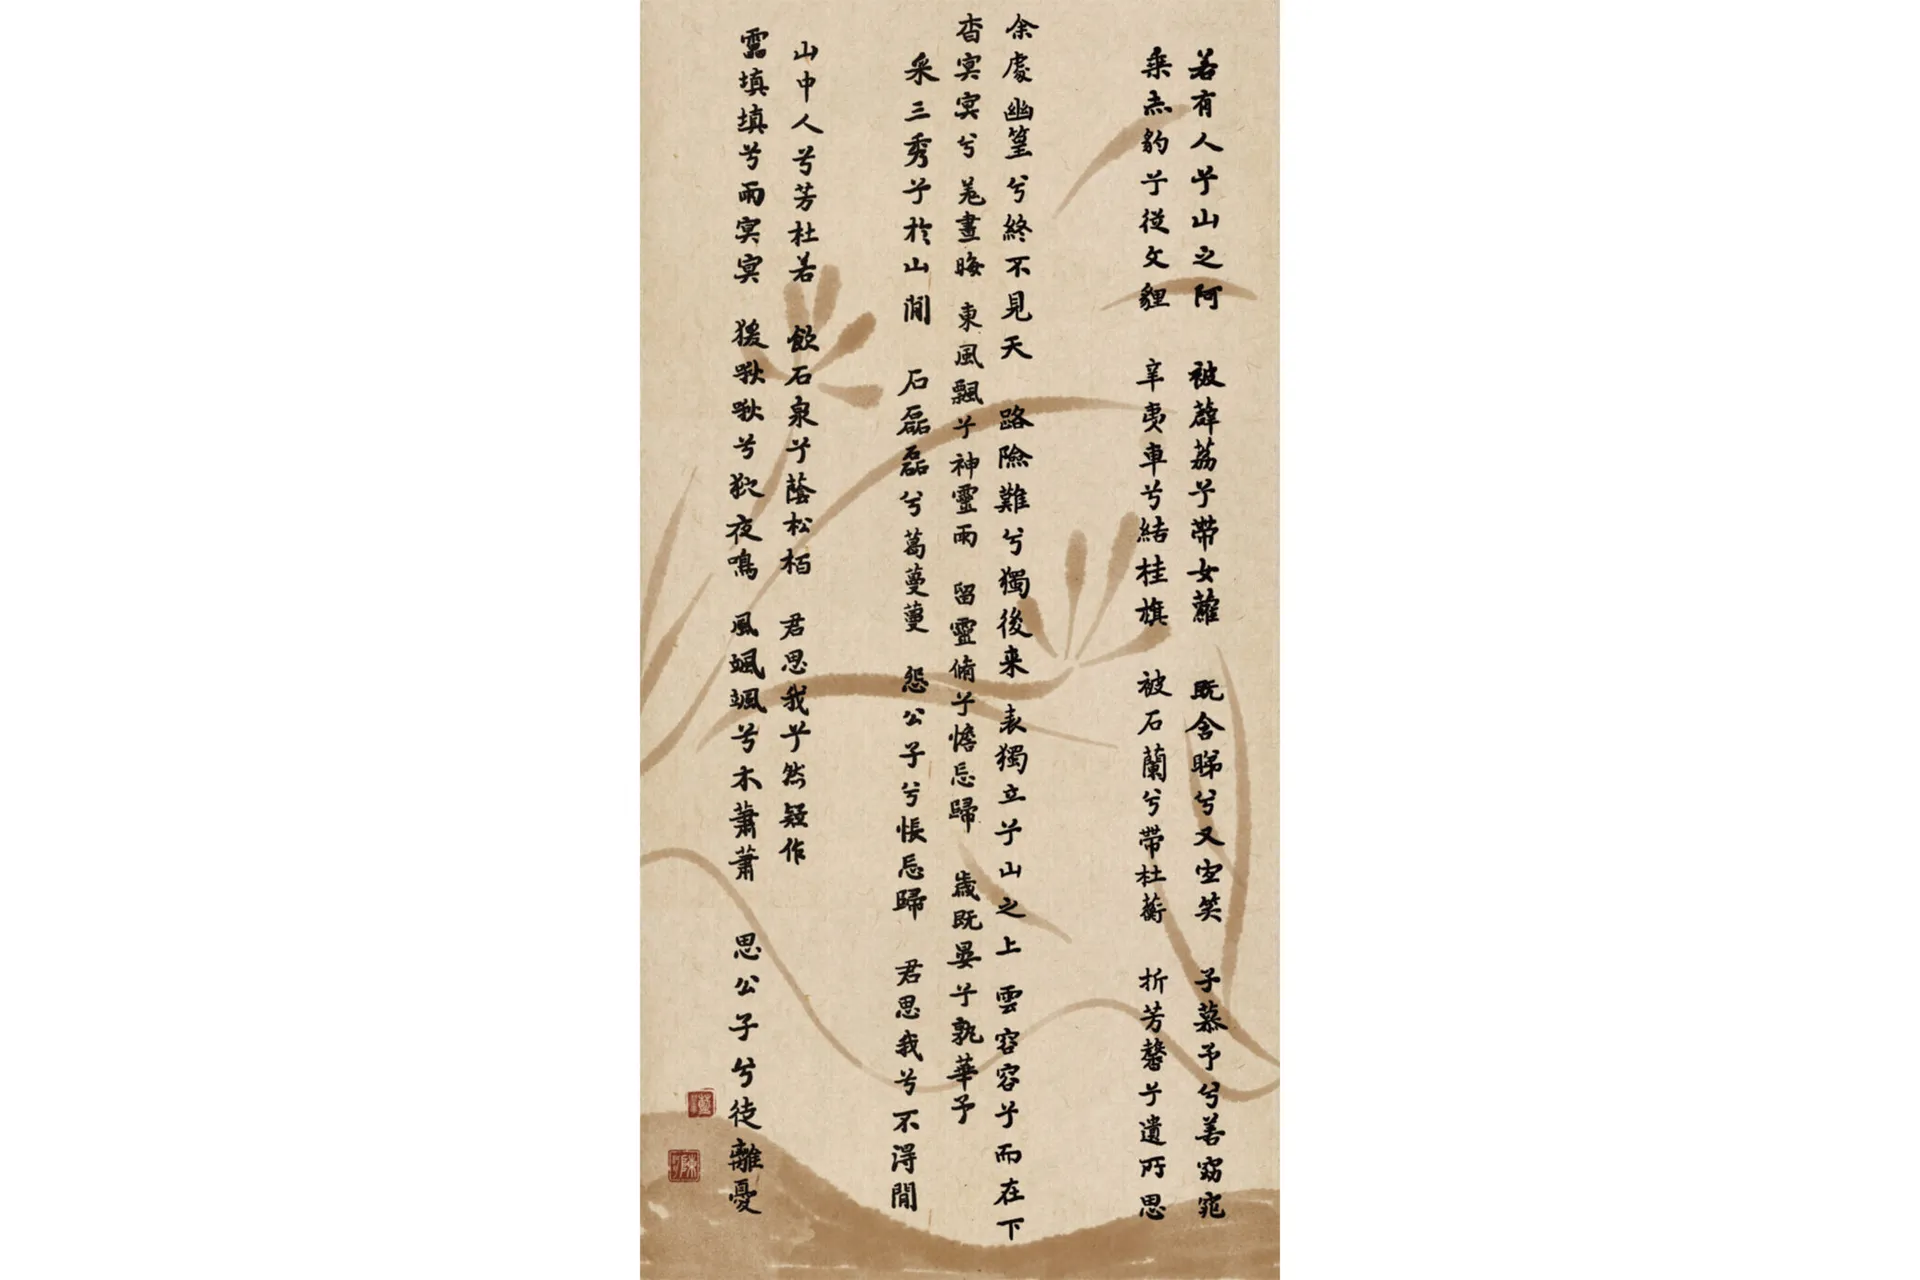 若有人兮山之阿 被薜荔兮帶女蘿 既含睇兮又宜笑 子慕予兮善窈窕
乘赤豹兮從文貍 辛夷車兮結桂旗 被石蘭兮帶杜蘅 折芳馨兮遺所思
余處幽篁兮終不見天 路險難兮獨後来 表獨立兮山之上 雲容容兮而在下
杳冥冥兮羌晝晦 東風飄兮神靈雨 留靈脩兮憺忘歸 歲既晏兮孰華予
采三秀兮於山間 石磊磊兮葛蔓蔓 怨公子兮悵忘歸 君思我兮不得閒
山中人兮芳杜若 飲石泉兮蔭松栢 君思我兮然疑作
靁填填兮雨冥冥 猨啾啾兮狖夜鳴 風颯颯兮木蕭蕭 思公子兮徒離憂